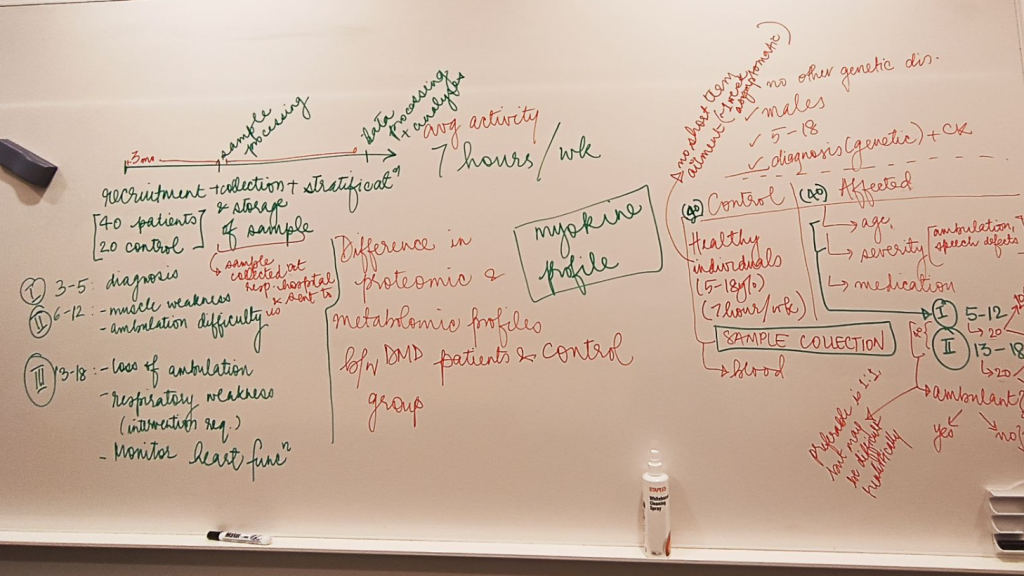 3mo
sample
processing
Data
processing
+ analyses
recruitment + collection + stratificatⁿ
[40 patients] & storage
[20 control] of sample
↳ sample
collected at
resp. hospital
& sent to
us
I 3-5: diagnosis
II 6-12: - muscle weakness
- ambulation difficulty
III 13-18: - loss of ambulation
- respiratory weakness
(intervention req.)
- Monitor heart funcⁿ
avg activity
7 hours/wk
Difference in
proteomic &
metabolomic profiles
b/w DMD patients & control
group
myokine
profile
no short term
ailment
asymptomatic)
no other genetic dis.
✓ males
✓ 5-18
✓ diagnosis (genetic) + CK
Control
Healthy
individuals
(5-18y/o)
(7hour/wk)
SAMPLE COLLECTION
↳ blood
Affected
↳ age
↳ severity [ambulation,
speech defects
↳ medication
I 5-12
↳ 20
II 13-18
↳ 20
ambulant?
yes
no
preferable is 1:1
but may
be difficult
realistically
STAPLES
Whiteboard
Cleaning
Spray